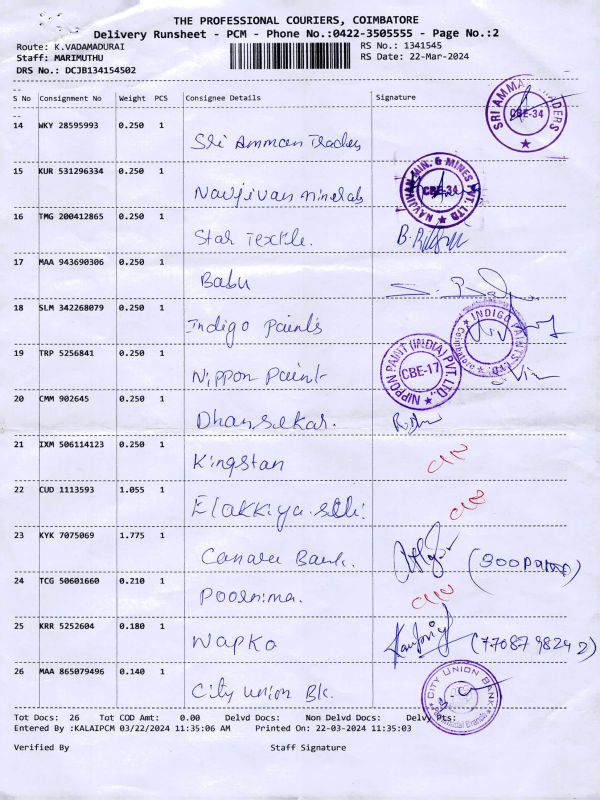 THE PROFESSIONAL COURIERS, COIMBATORE
Delivery Runsheet - PCM - Phone No.:0422-3505555 - Page No.:2
Route: K.VADAMADURAI RS No.: 1341545
Staff: MARIMUTHU RS Date: 22-Mar-2024
DRS No.: DCJB134154502
S No Consignment No Weight PCS Consignee Details Signature
14 WKY 28595993 0.250 1
Sri Amman Traders
SRI AMMA TRADERS CBE-34
15 KUR 531296334 0.250 1
Navjivan minerals
NAVJIVAN MIN. & MINES PVT. LTD CBE-34
16 TMG 200412865 0.250 1
Star Textile.
17 MAA 943690306 0.250 1
Babu
18 SLM 342268079 0.250 1
Indigo paints
INDIGO PAINTS LTD Coimbatore
19 TRP 5256841 0.250 1
Nippon Paint
NIPPON PAINT (INDIA) PVT. LTD. CBE-17
20 CMM 902645 0.250 1
Dhansekar.
21 IXM 506114123 0.250 1
Kingstan
22 CUD 1113593 1.055 1
23 KYK 7075069 1.775 1
Canara Bank.
24 TCG 50601660 0.210 1
Poornima.
25 KRR 5252604 0.180 1
Wapko
(77087 98242)
26 MAA 865079496 0.140 1
City Union Bk.
CITY UNION BANK
Tot Docs: 26 Tot COD Amt: 0.00 Delvd Docs: Non Delvd Docs: Delvy Pts:
Entered By :KALAIPCM 03/22/2024 11:35:06 AM Printed On: 22-03-2024 11:35:03
Verified By Staff Signature